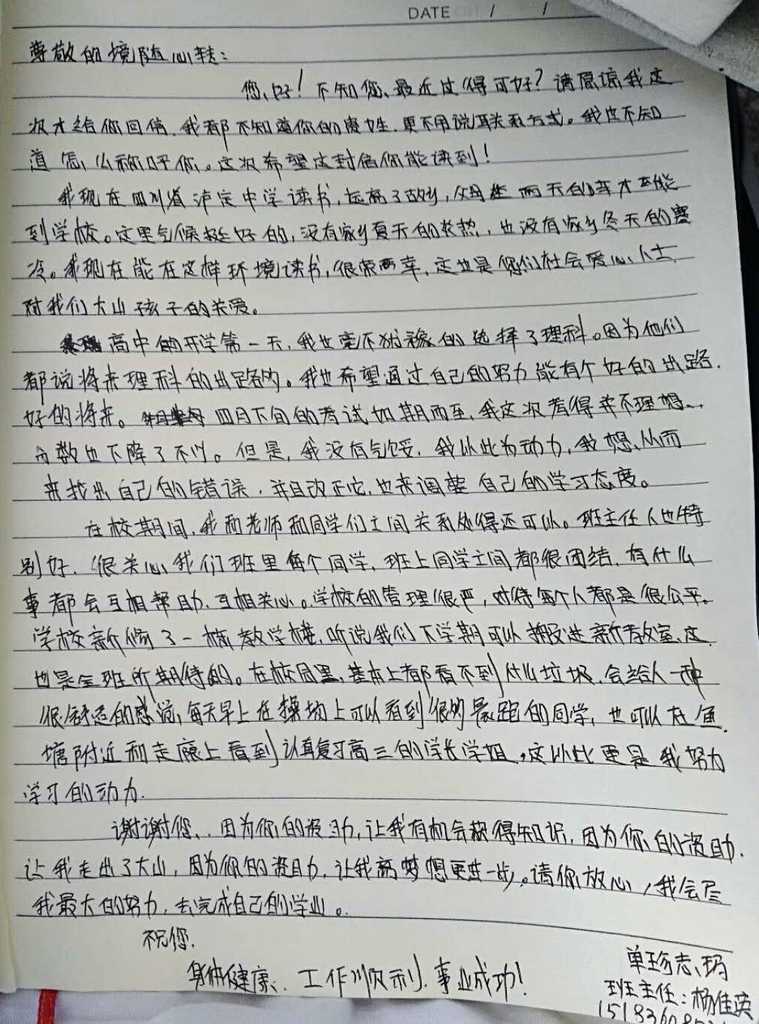 DATE / /
尊敬的境随心转:
您、好!不知您、最近过得可好?请原谅我这
次才给你回信,我都不知道你的贵姓,更不用说联系方式。我也不知
道怎么称呼你。这次希望这封信你能读到!
我现在四川省泸定中学读书,远离了故乡,父母 坐两天的车才能
到学校。这里气候挺好的,没有家乡夏天的炎热,也没有家乡冬天的寒
冷。我现在能在这样环境读书,很荣幸,这也是你们社会爱心人士
对我们大山孩子的关爱。
高中的开学第一天,我也毫不犹豫的选择了理科。因为他们
都说将来理科的出路多。我也希望通过自己的努力能有个好的出路.
好的将来。四月下旬的考试如期而至,我这次考得并不理想、
分数也下降了不少。但是,我没有气馁,我以此为动力,我想、从而
来找出自己的错误,并且改正它,也来调整自己的学习态度。
在校期间,我和老师和同学们之间关系处得还可以。班主任人也特
别好,很关心我们班里每个同学,班上同学之间都很团结,有什么
事都会互相帮助、互相关心。学校的管理很严,对待每个人都是很公平。
学校新修了一栋教学楼,听说我们下学期可以搬进新教室,这
也是全班所期待的。在校园里,基本上都看不到什么垃圾,会给人一种
很舒适的感觉,每天早上在操场上可以看到很多晨跑的同学,也可以在鱼
塘附近和走廊上看到认真复习高三的学长学姐,这以此更是我努力
学习的动力.
谢谢您、因为你的资助,让我有机会获得知识,因为你的资助,
让我走出了大山,因为你的资助,让我离梦想更进一步。请你放心,我会尽
我最大的努力,去完成自己的学业。
祝您、
身体健康、工作顺利、事业成功!
单珍志玛
班主任:杨佳英